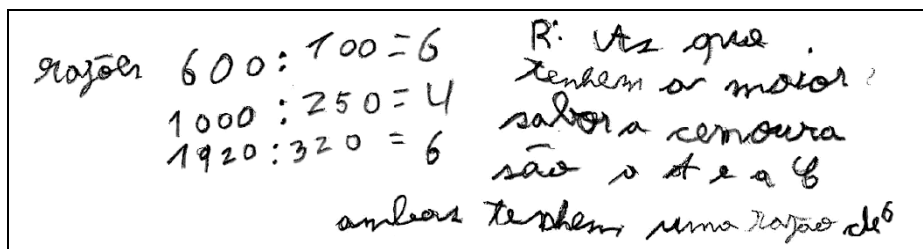 razões 600 : 100 = 6
1000 : 250 = 4
1920 : 320 = 6
R: As que
tenhem a maior
sabor a cenoura
são o A e a C
ambas tenhem uma razão de 6